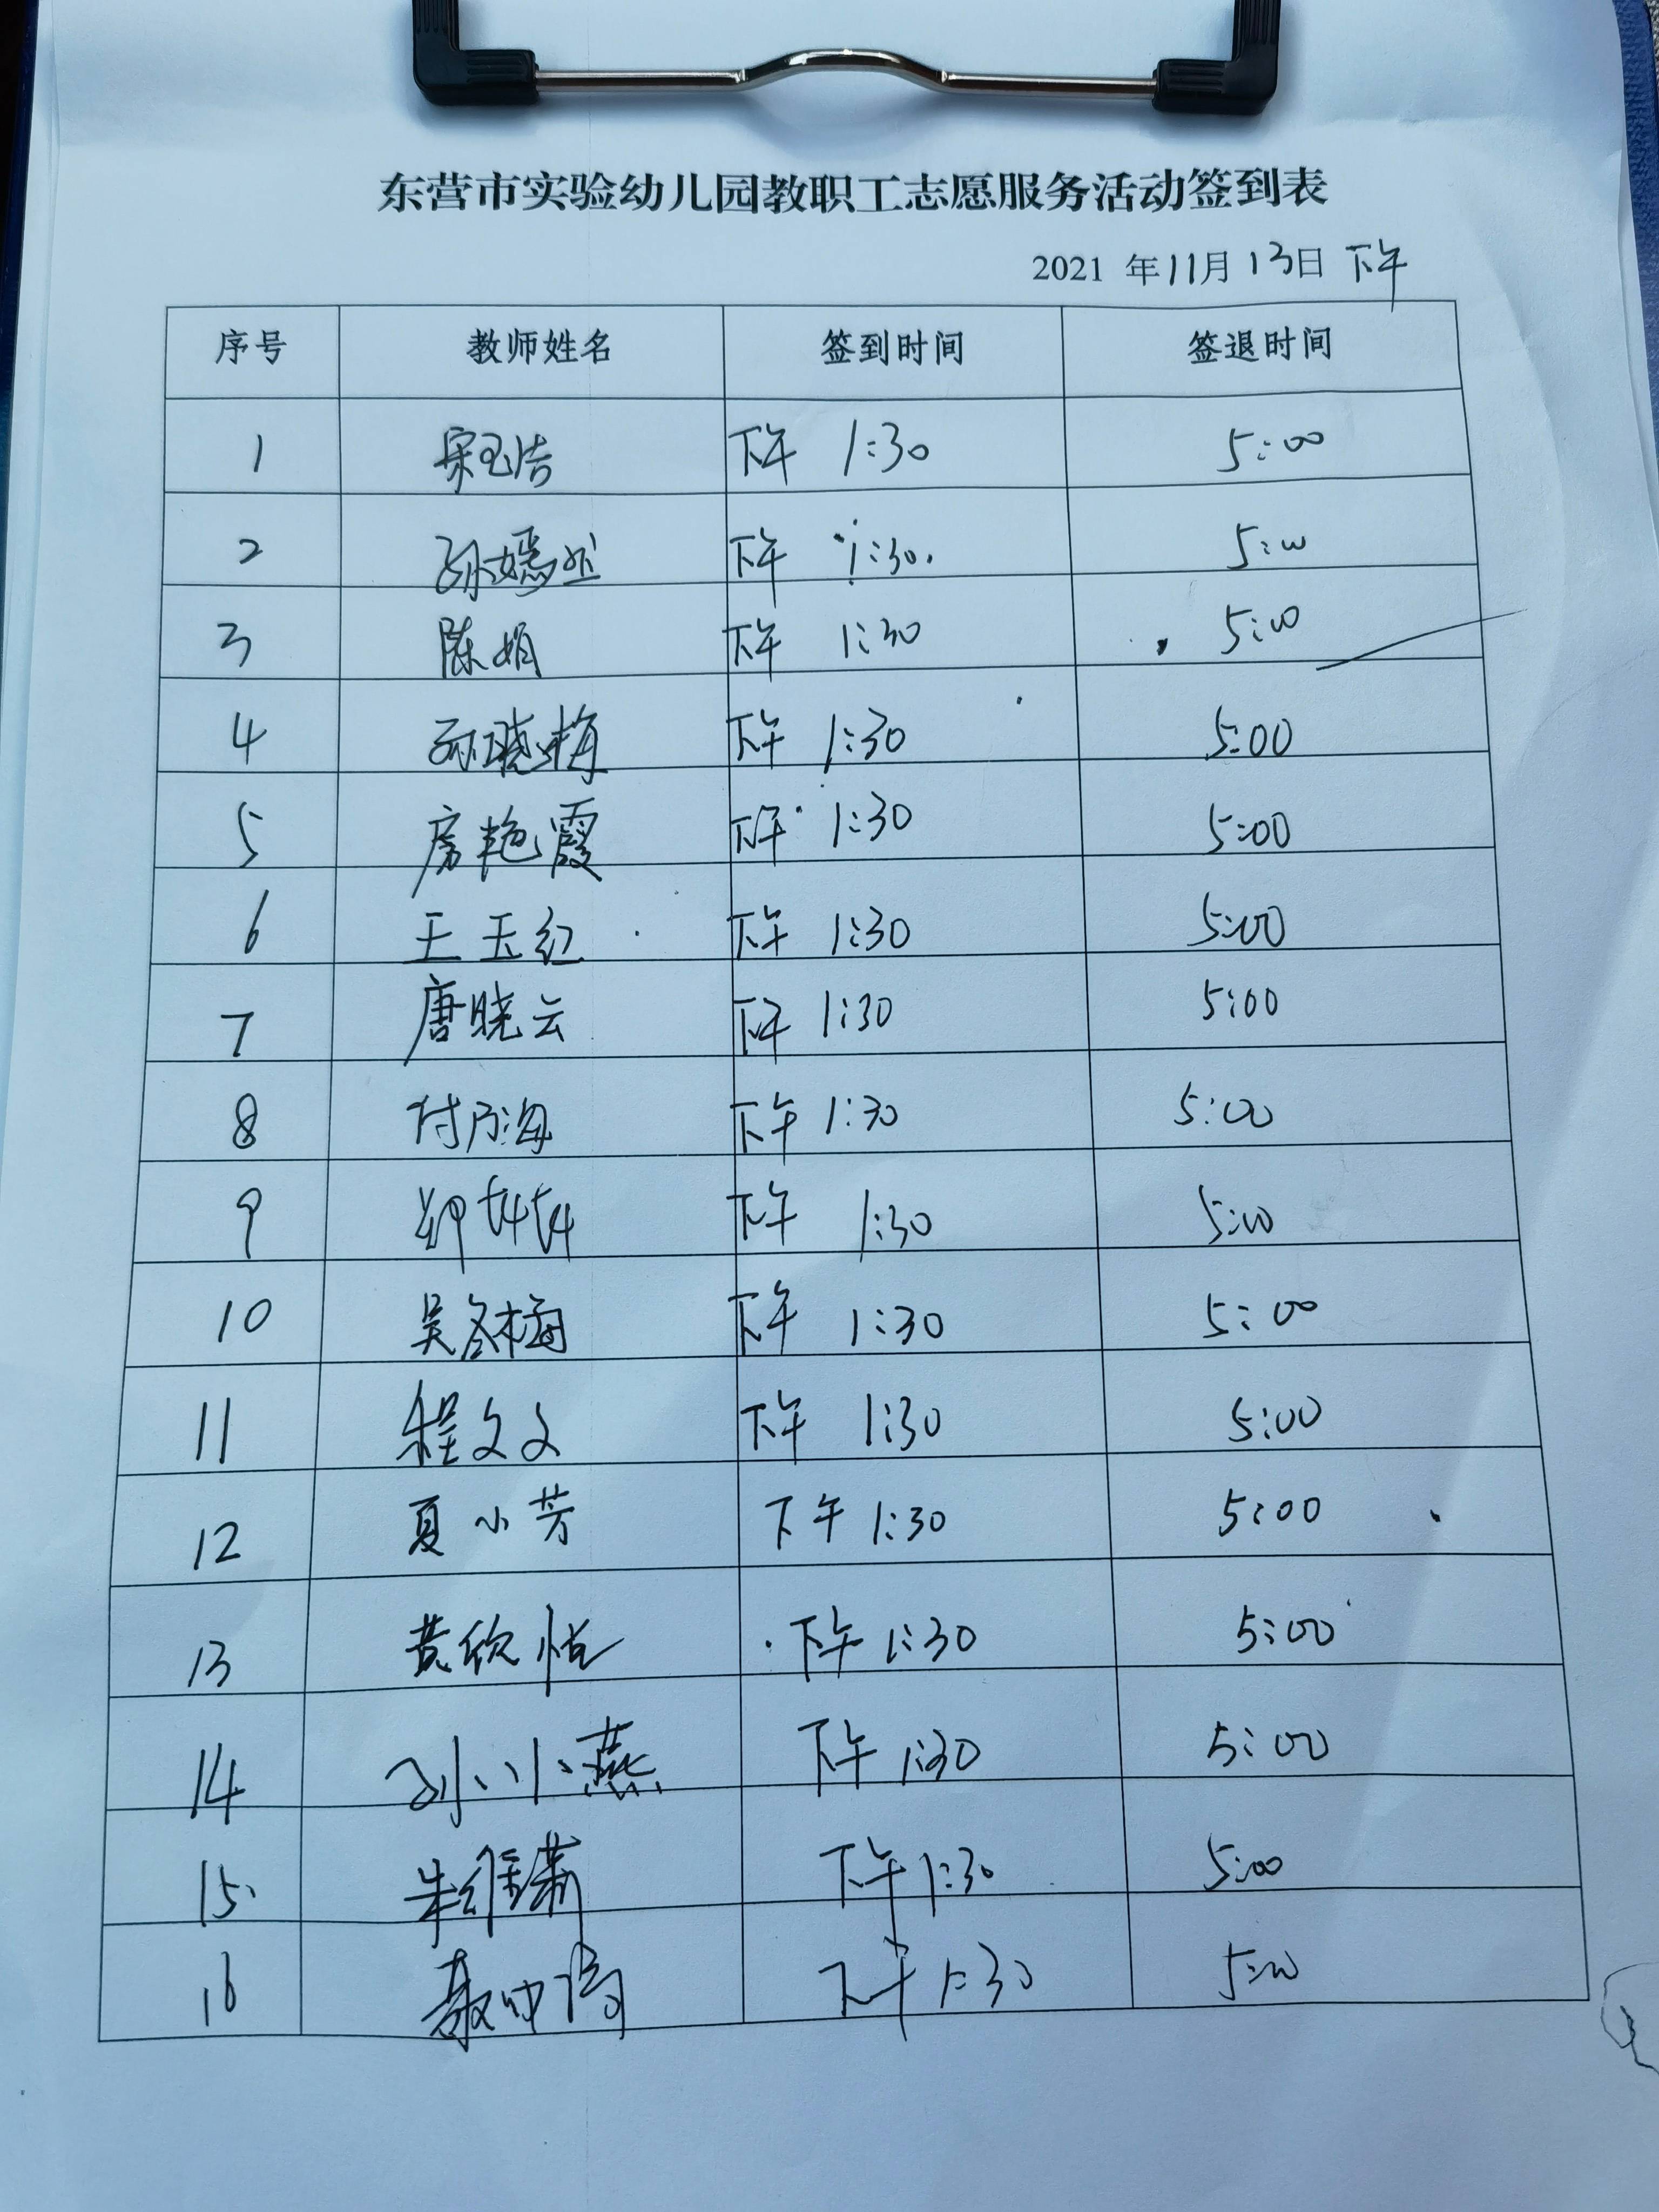 东营市实验幼儿园教职工志愿服务活动签到表
2021 年11月13日 下午
序号 教师姓名 签到时间 签退时间
1 宋玉洁 下午 1:30 5:00
2 孙嫣然 下午 1:30 5:00
3 陈娟 下午 1:30 5:00
4 孙晓梅 下午 1:30 5:00
5 房艳霞 下午 1:30 5:00
6 王玉红 下午 1:30 5:00
7 唐晓云 下午 1:30 5:00
8 付乃海 下午 1:30 5:00
9 下午 1:30 5:00
10 吴冬梅 下午 1:30 5:00
11 程文文 下午 1:30 5:00
12 夏小芳 下午 1:30 5:00
13 黄欣悦 下午 1:30 5:00
14 孙小燕 下午 1:30 5:00
15 下午 1:30 5:00
16 下午 1:30 5:00